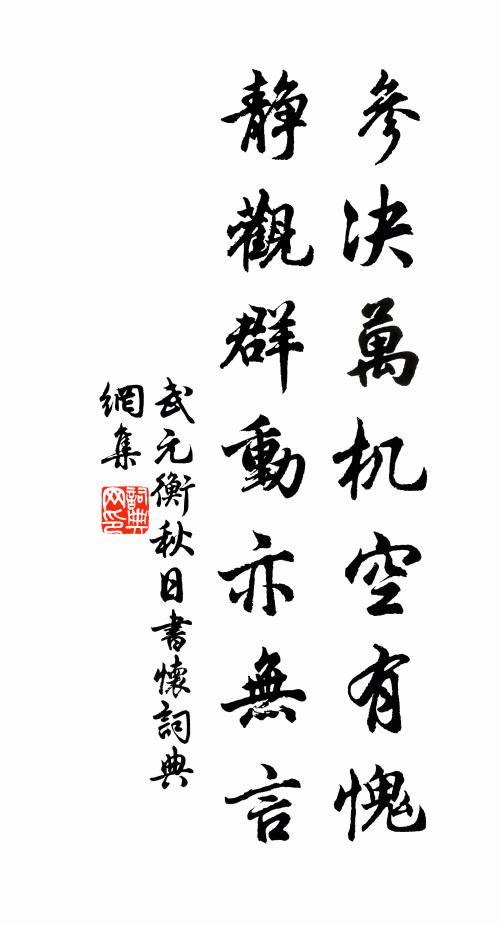 參决萬机空有愧
静觀群動亦無言
武元衡秋日書懷詞典
網集
詞典
网印